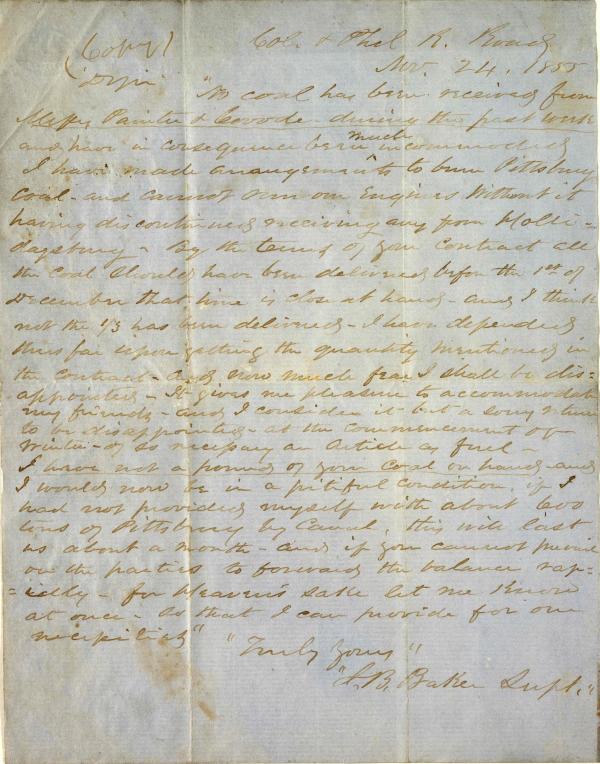 (Copy)
Col. & Phil R. Road
Nov. 24, 1855
"No coal has been received from
Messrs Painter & Covode during the past week
and have in consequence been much incommoded
I have made arrangements to burn Pittsburg
coal - and cannot run our Engines without it
having discontinued receiving any from Holli-
daysburg - By the terms of your contract all
the coal should have been delivered before the 1st of
December that time is close at hand - and I think
not the 1/3 has been delivered - I have depended
thus far upon getting the quantity mentioned in
the contract - and now much fear I shall be dis-
appointed - It gives me pleasure to accommodate
my friends - and I consider it but a sorry return
to be disappointed - at the commencement of
winter - of so necessary an article as fuel -
I have not a pound of your coal on hand - and
I would now be in a pitiful condition if I
had not provided myself with about 600
tons of Pittsburg by Canal, this will last
us about a month - and if you cannot prevail
on the parties to forward the balance rap-
=idly - for Heaven's sake let me know
at once - so that I can provide for our
necessities"
"Truly yours"
"J. B. Baker Supt."